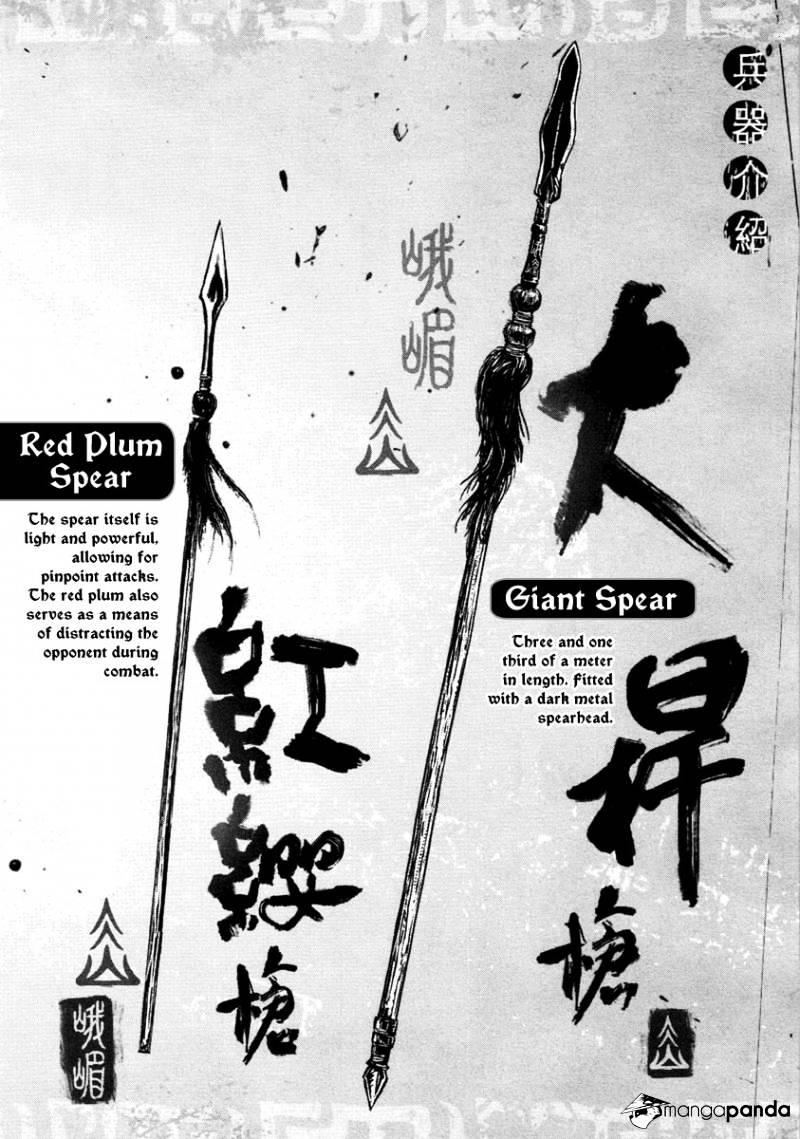 兵器介紹
大桿槍
峨嵋
Giant Spear
Three and one
third of a meter
in length. Fitted
with a dark metal
spearhead.
紅纓槍
Red Plum
Spear
The spear itself is
light and powerful,
allowing for
pinpoint attacks.
The red plum also
serves as a means
of distracting the
opponent during
combat.
峨嵋
mangapanda